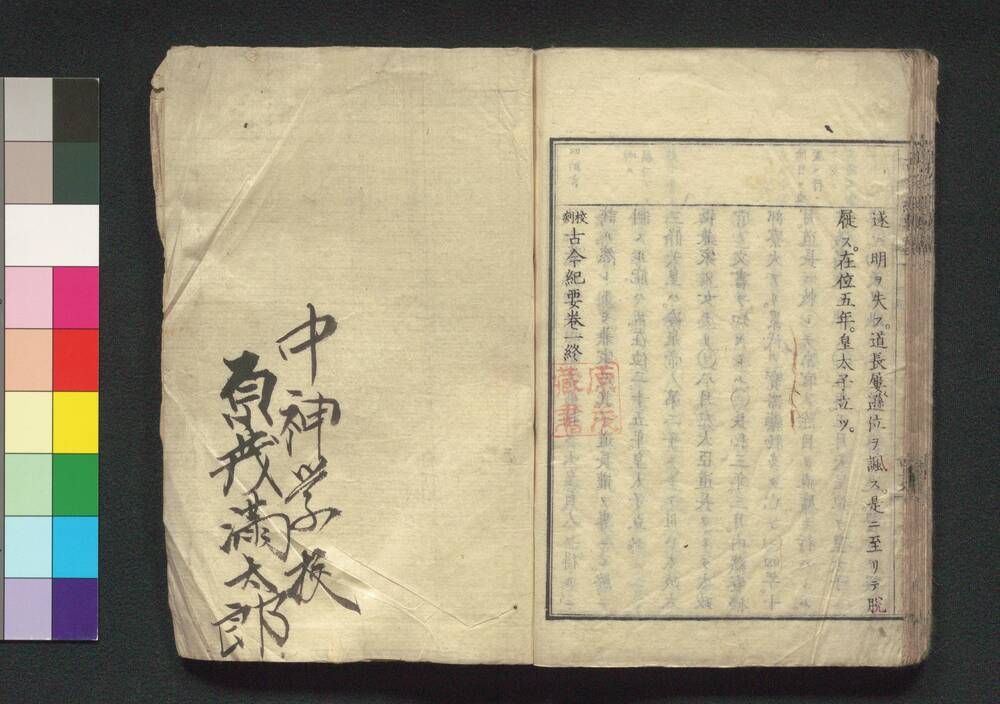 遂ニ明ヲ失フ。道長屢遜位ヲ諷ス。是ニ至リテ脫
屣ス。在位五年。皇太子立ツ。
校刻古今紀要卷一終
藏書
中神学校
賀茂満太郎